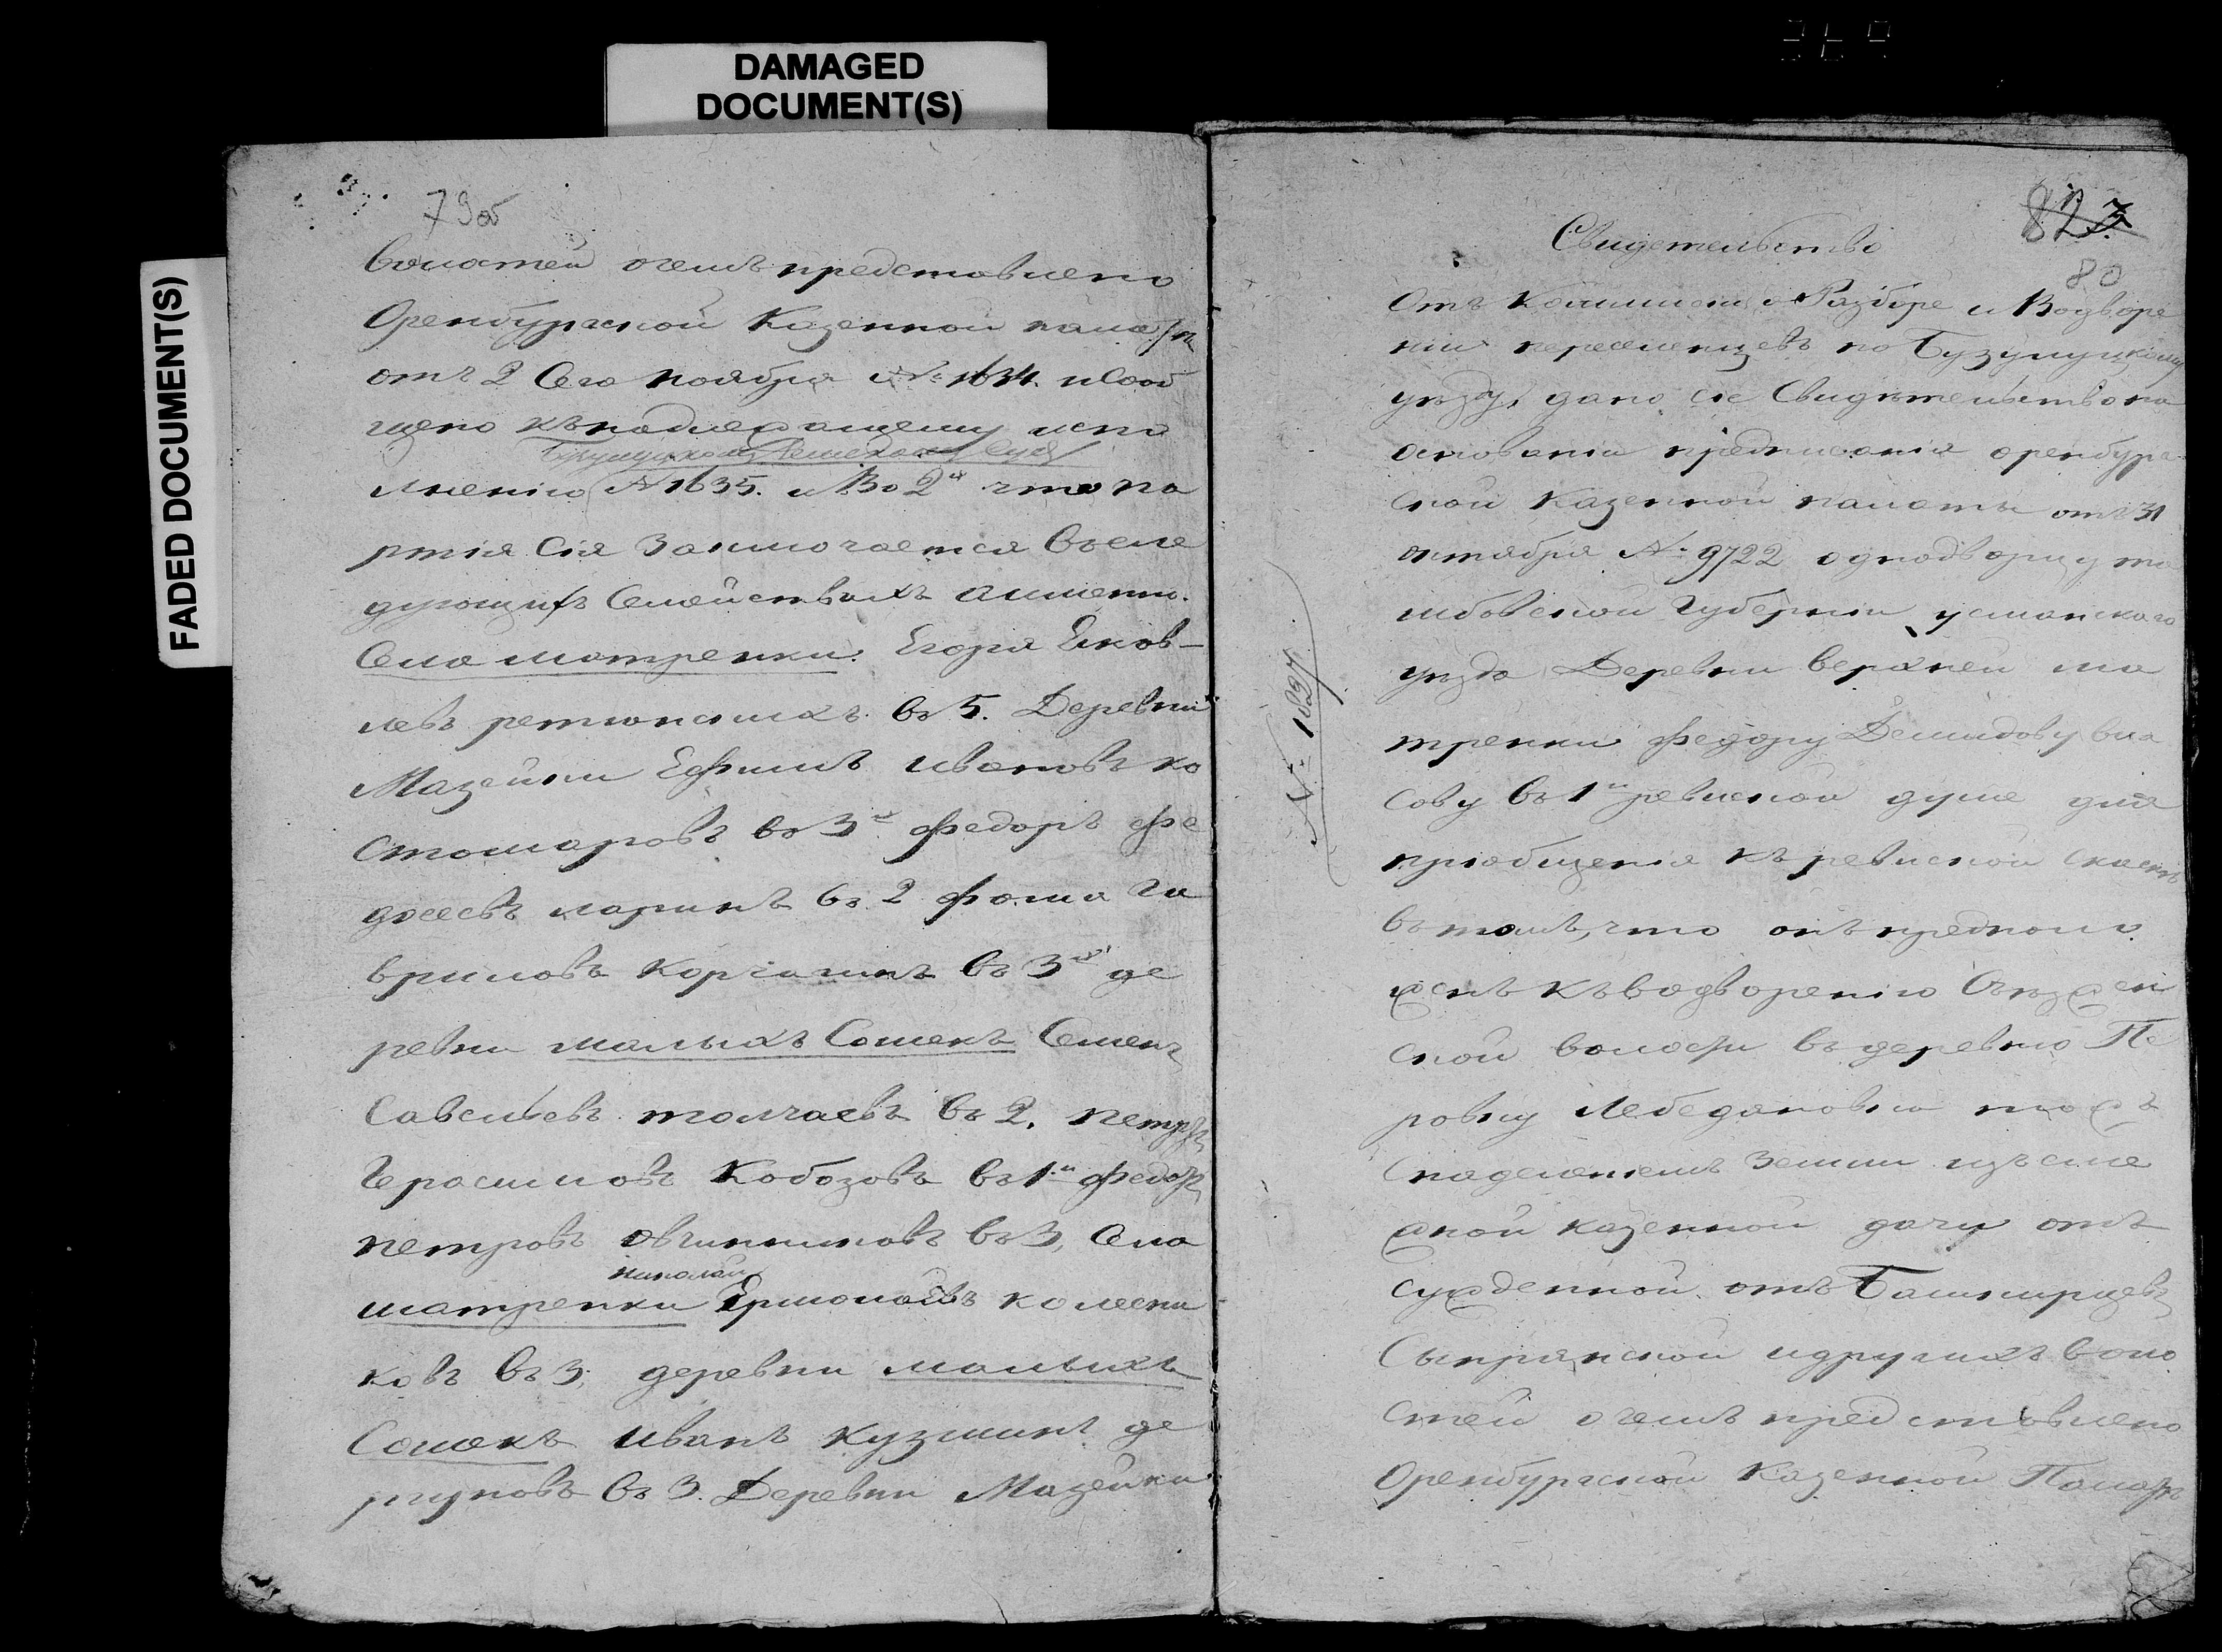 DAMAGED
DOCUMENT(S)
FADED DOCUMENT(S)
79об
волостей очемъ представлено
Оренбургской Казенной пала
отъ 2 Сего ноября № 1634. и Сооб
щено къ надлежащему испо
Бузулукскому Земскому Суду
лнению № 1635. и Во 2х что па
ртия Сия Заключается Всле
дующихъ Семействахъ аименно.
Села матренки. Егоръ Яков-
левъ ретюнскихъ въ 5. Деревни
Мазейки Ефимъ ивановъ ко
стомаровъ въ 3х федоръ фа
деевъ ларинъ въ 2 фома га
вриловъ Корчагинъ въ 3х де
ревни малыхъ Сомекъ Семенъ
Савельевъ толчаевъ въ 2. петръ
Герасимовъ Кобозовъ въ 1й федоръ
петровъ овчинниковъ въ 3, Села
николай
матренки Ермолаевъ колесни
ковъ въ 3. деревни малыхъ
Сомекъ иванъ кузминъ де
ргуновъ въ 3. Деревни Мазейки
80
Свидетельство
Отъ Коммисии о Разборе и Водворе
нии переселенцевъ по Бузулуцкому
уезду, дано сие Свидетельство на
основании предписания оренбург
ской Казенной палаты отъ 31
октября № 9722 однодворцу та
мбовской губернии усманскаго
уезда Деревни верхней ма
тренки федору Демидову вла
сову въ 1й ревиской душе для
приобщения къ ревиской Сказке
въ томъ, что онъ предполо
женъ къ водворению Съезжен
ской волости въ деревню Пе
ровку Лебедяновка тожъ
снаделениемъ Земли изъсме
жной казенной дачи отъ
сужденной отъ Башкирцевъ
Сыпрянской идругихъ воло
стей очемъ представлено
Оренбургской Казенной Палаты
№ 1637.